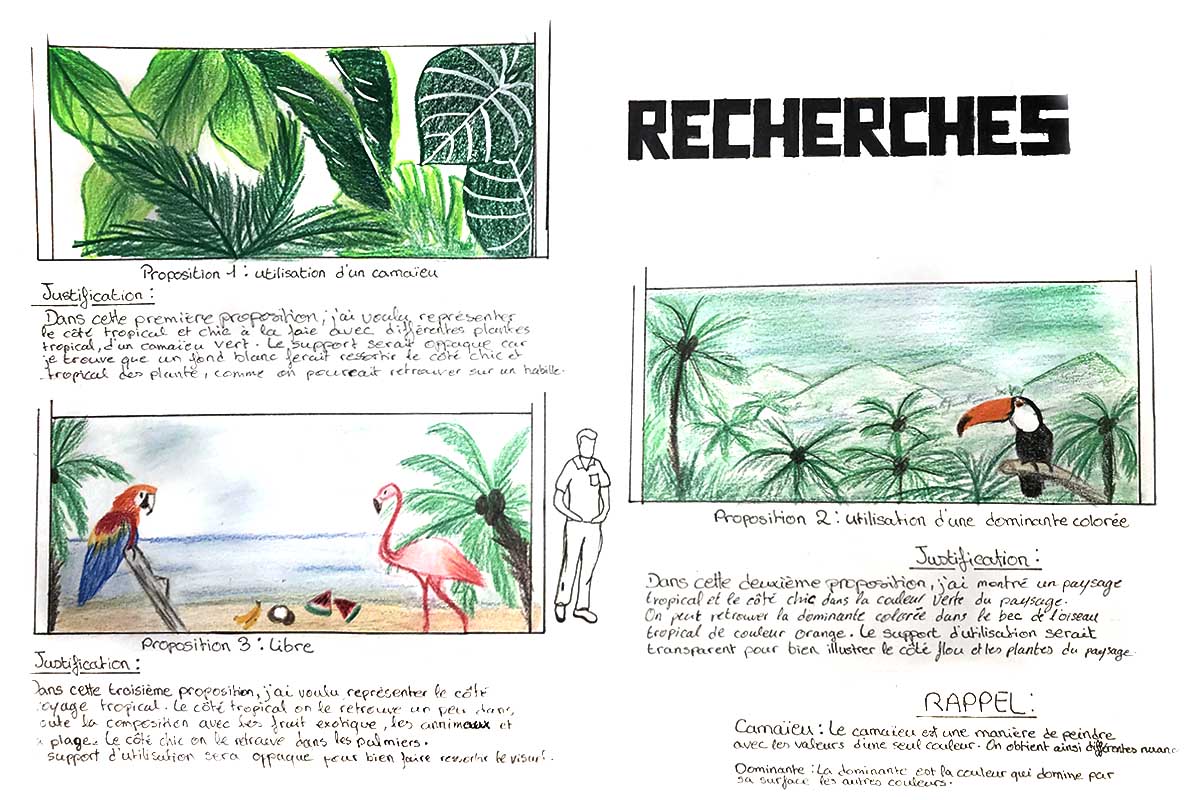 RECHERCHES
Proposition 1 : utilisation d'un camaïeu
Justification :
Dans cette première proposition, j'ai voulu représenter
le côté tropical et chic à la foie avec différentes plantes
tropical, d'un camaïeu vert. Le support serait opaque car
je trouve que un fond blanc ferait ressortir le côté chic et
tropical des planté, comme on pourrait retrouver sur un habille.
Proposition 2 : utilisation d'une dominante colorée
Justification :
Dans cette deuxième proposition, j'ai montré un paysage
tropical et le côté chic dans la couleur verte du paysage.
On peut retrouver la dominante colorée dans le bec de l'oiseau
tropical de couleur orange. Le support d'utilisation serait
transparent pour bien illustrer le côté flou et les plantes du paysage.
Proposition 3 : Libre
Justification :
Dans cette troisième proposition, j'ai voulu représenter le côté
voyage tropical. Le côté tropical on le retrouve un peu dans
toute la composition avec les fruit exotique, les annimeaux et
plage. Le côté chic on le retrouve dans les palmiers.
support d'utilisation sera oppaque pour bien faire ressortir le visuel.
RAPPEL :
Camaïeu : Le camaïeu est une manière de peindre
avec les valeurs d'une seul couleur. On obtient ainsi différentes nuanc
Dominante : La dominante est la couleur qui domine par
sa surface les autres couleurs.